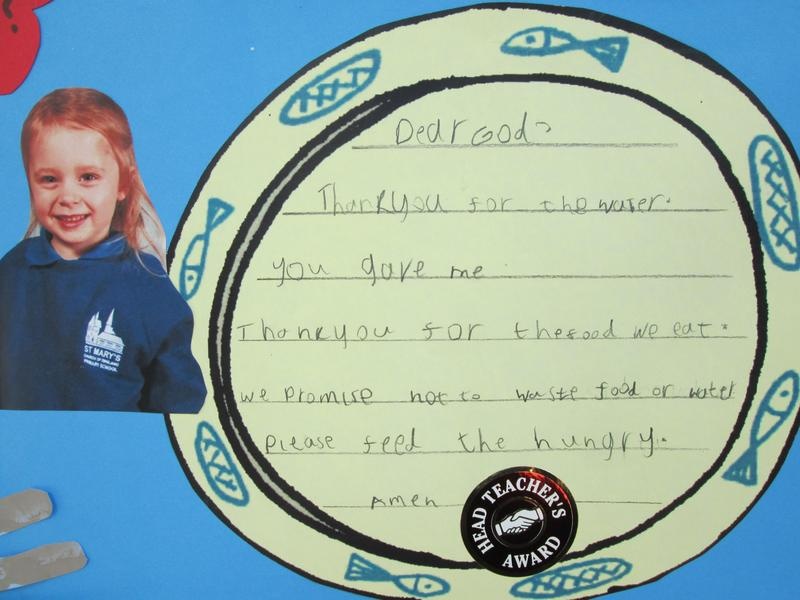 Dear God,
Thankyou for the water.
you gave me
Thankyou for thefood we eat.
we promise not to waste food or water
please feed the hungry.
Amen
HEAD TEACHER'S
AWARD
ST MARY'S
CHURCH OF ENGLAND
PRIMARY SCHOOL